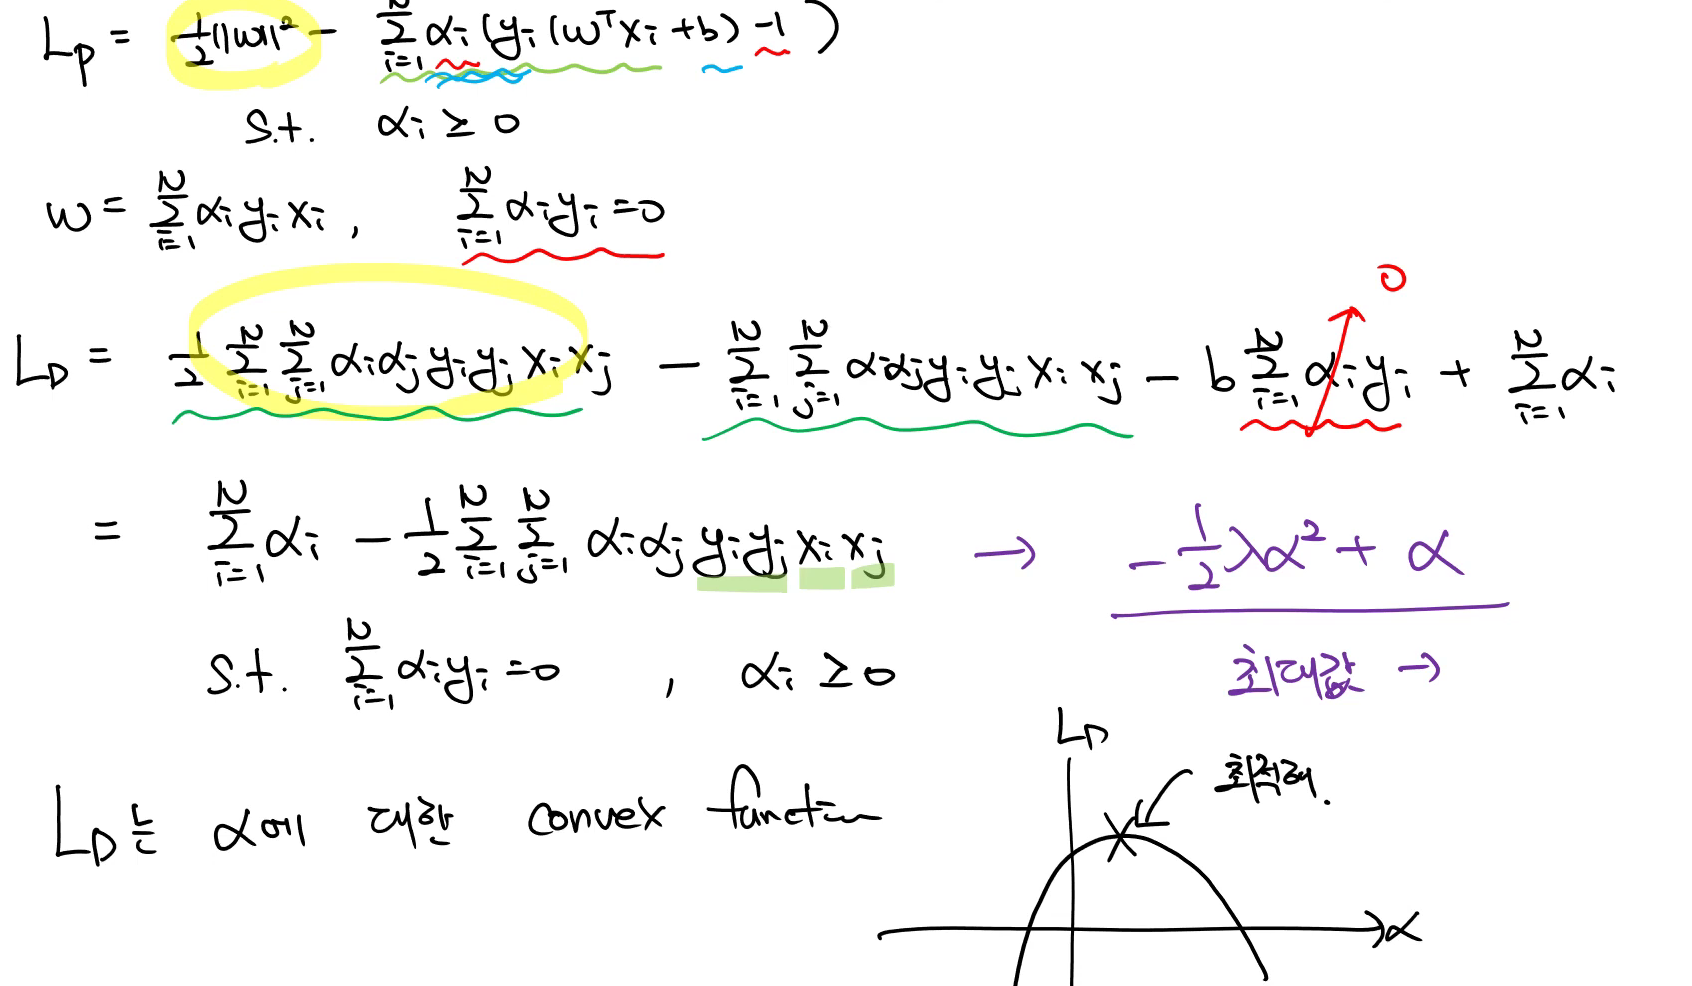 Lp = ½||w||² - Σ_{i=1}^{N} αi (yi (wᵀxi + b) -1)
s.t. αi ≥ 0
w = Σ_{i=1}^{N} αi yi xi , Σ_{i=1}^{N} αi yi = 0
0
L_D = ½ Σ_{i=1}^{N} Σ_{j=1}^{N} αi αj yi yj xi xj - Σ_{i=1}^{N} Σ_{j=1}^{N} αi αj yi yj xi xj - b Σ_{i=1}^{N} αi yi + Σ_{i=1}^{N} αi
= Σ_{i=1}^{N} αi - ½ Σ_{i=1}^{N} Σ_{j=1}^{N} αi αj yi yj xi xj → -½λα² + α
s.t. Σ_{i=1}^{N} αi yi = 0 , αi ≥ 0 최대값 →
L_D
최적해.
L_D는 α에 대한 convex function
α